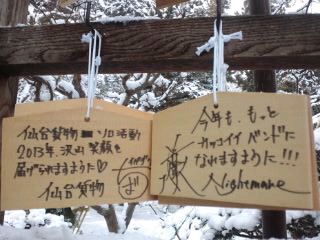 仙台貨物 ソロ活動
2013年、沢山笑顔を
届げられますように♡
仙台貨物
今年も、もっと
カッコイイ バンドに
なれますように!!!
Nightmare